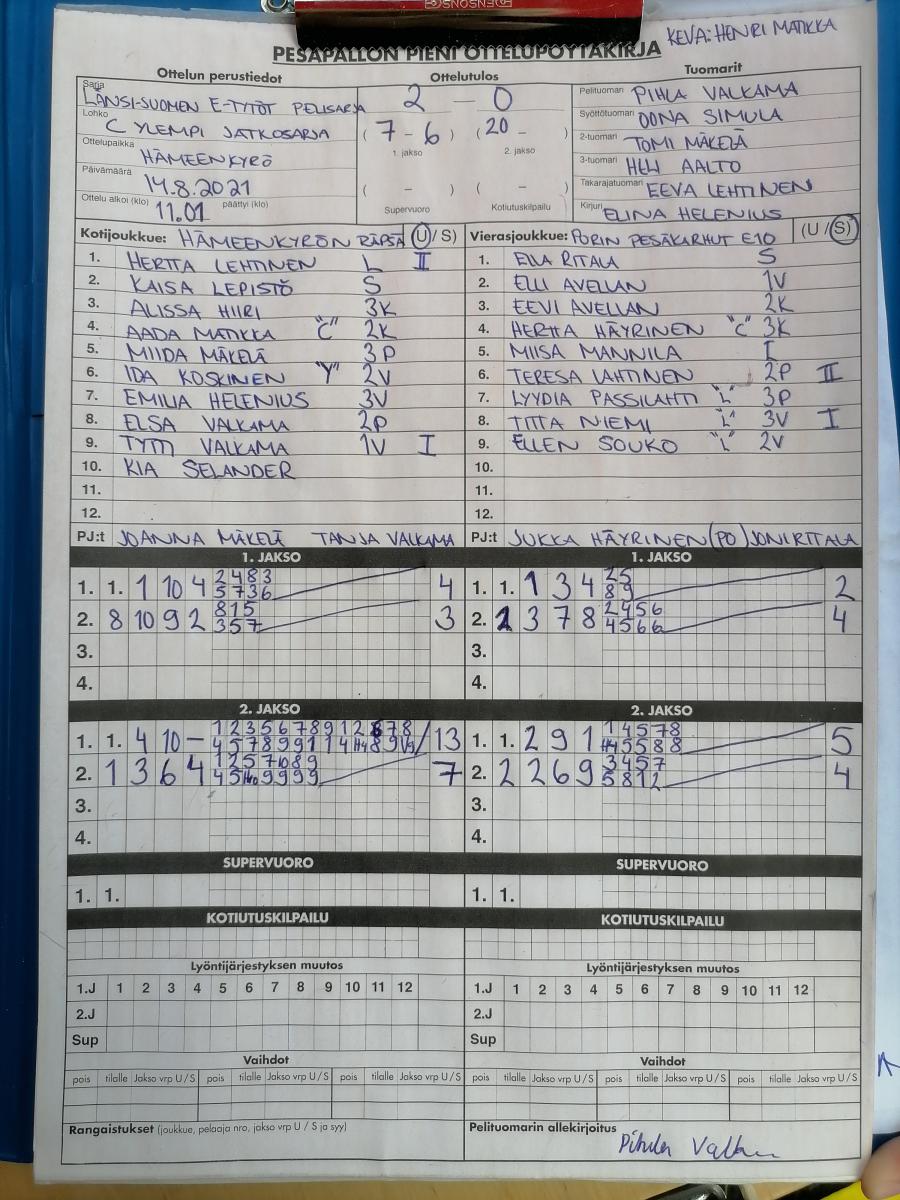 PESÄPALLON PIENI OTTELUPÖYTÄKIRJA
KEVA: HENRI MATIKKA
Ottelun perustiedot Ottelutulos Tuomarit
Sarja LÄNSI-SUOMEN E-TYTÖT PELISARJA
Lohko C YLEMPI JATKOSARJA
Ottelupaikka HÄMEENKYRÖ
Päivämäärä 14.8.2021
Ottelu alkoi (klo) 11.01 päättyi (klo)
2 – 0
( 7 - 6 ) ( 20 - )
1. jakso 2. jakso
( - ) ( - )
Supervuoro Kotiutuskilpailu
Pelituomari PIHLA VALKAMA
Syöttötuomari OONA SIMULA
2-tuomari TOMI MÄKELÄ
3-tuomari HELI AALTO
Takarajatuomari EEVA LEHTINEN
Kirjuri ELINA HELENIUS
Kotijoukkue: HÄMEENKYRÖN RÄPSÄ (U / S)
1. HERTTA LEHTINEN L II
2. KAISA LEPISTÖ S
3. ALISSA HIIRI 3K
4. AADA MATIKKA "C" 2K
5. MIIDA MÄKELÄ 3P
6. IDA KOSKINEN "Y" 2V
7. EMILIA HELENIUS 3V
8. ELSA VALKAMA 2P
9. TYTTI VALKAMA 1V I
10. KIA SELANDER
11.
12.
PJ:t JOANNA MÄKELÄ TANJA VALKAMA
Vierasjoukkue: PORIN PESÄKARHUT E10 (U / S)
1. EILA RITALA S
2. ELLI AVELLAN 1V
3. EEVI AVELLAN 2K
4. HERTTA HÄYRINEN "C" 3K
5. MIISA MANNILA
6. TERESA LAHTINEN 2P II
7. LYYDIA PASSILAHTI "L" 3P
8. TITTA NIEMI "L" 3V I
9. ELLEN SOUKO "L" 2V
10.
11.
12.
PJ:t JUKKA HÄYRINEN (PO) JONI RITALA
1. JAKSO
1. 1. 1 10 4 2 4 8 3 4
5 7 3 6
2. 8 10 9 2 8 1 5 3
3 5 7
3.
4.
1. JAKSO
1. 1. 1 3 4 2 5 2
8 9
2. 1 3 7 8 2 4 5 6 4
4 5 6 6
3.
4.
2. JAKSO
1. 1. 4 10 – 13
2. 1 3 6 4 1 2 5 7 10 8 9 7
3.
4.
2. JAKSO
1. 1. 2 9 1 1 4 5 7 8 5
2. 2 2 6 9 3 4 5 7 4
5 8 1 2
3.
4.
SUPERVUORO
1. 1.
SUPERVUORO
1. 1.
KOTIUTUSKILPAILU
KOTIUTUSKILPAILU
Lyöntijärjestyksen muutos
1.J 1 2 3 4 5 6 7 8 9 10 11 12
2.J
Sup
Lyöntijärjestyksen muutos
1.J 1 2 3 4 5 6 7 8 9 10 11 12
2.J
Sup
Vaihdot
pois tilalle Jakso vrp U / S pois tilalle Jakso vrp U / S pois tilalle Jakso vrp U / S
Vaihdot
pois tilalle Jakso vrp U / S pois tilalle Jakso vrp U / S pois tilalle Jakso vrp U / S
Rangaistukset (joukkue, pelaaja nro, jakso vrp U / S ja syy)
Pelituomarin allekirjoitus